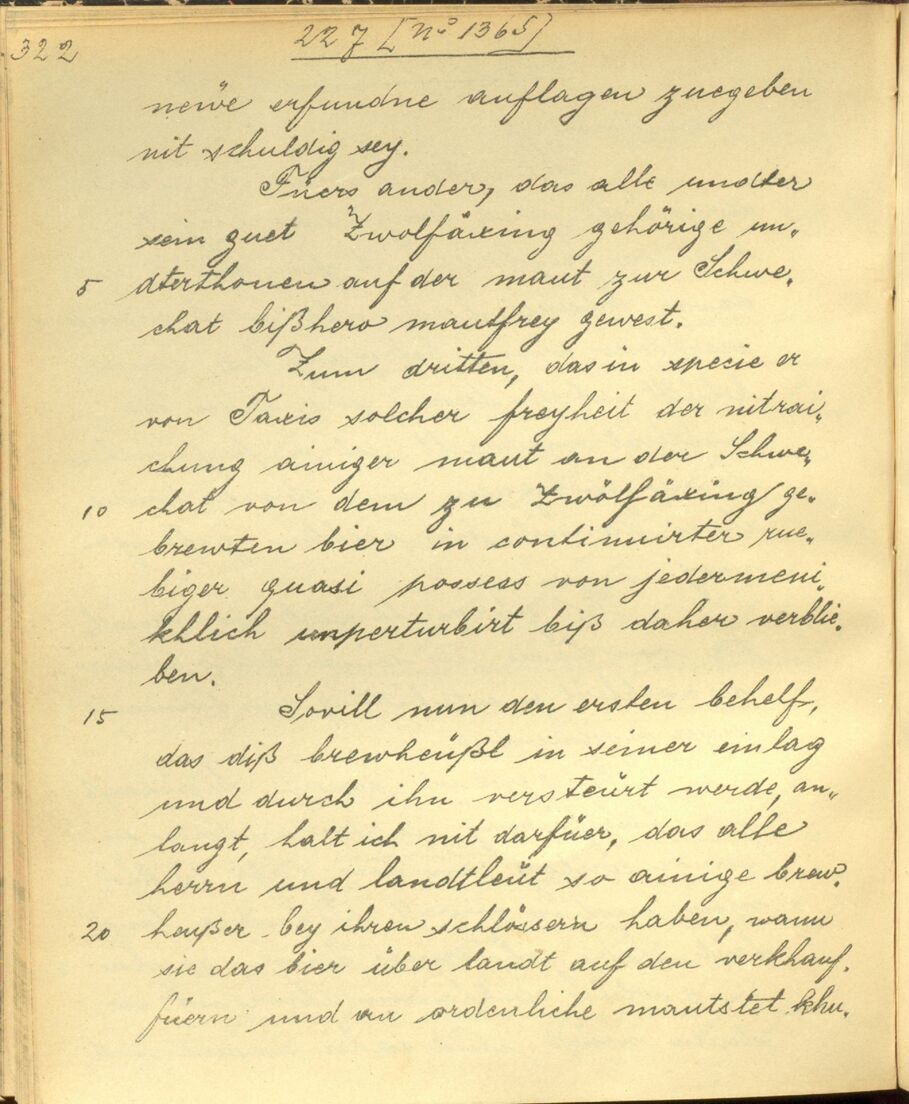 322
227 [No 1365]
newe erfundne auflagen zuegeben
nit schuldig sey.
Füers ander, das alle undter
sein guet Zwolfäxing gehörige un-
5 dterthonen auf der maut zur Schwe-
chat bißhero mautfrey gewest.
Zum dritten, das in specie er
von Taxis solcher freyheit der nitrai-
chung ainiger maut an der Schwe-
10 chat von dem zu Zwölfäxing ge-
brewten bier in continuirter rue-
biger quasi possess von jedermeni-
khlich unperturbirt biß daher verblie-
ben.
15 Sovill nun den ersten behelf,
das diß brewheüßl in seiner einlag
und durch ihn versteürt werde, an-
langt, halt ich nit darfüer, das alle
herrn und landtleüt so ainige brew-
20 heyßer bey ihren schlössern haben, wann
sie das bier über landt auf den verkhauf
füern und an ordenliche mautstet khu-